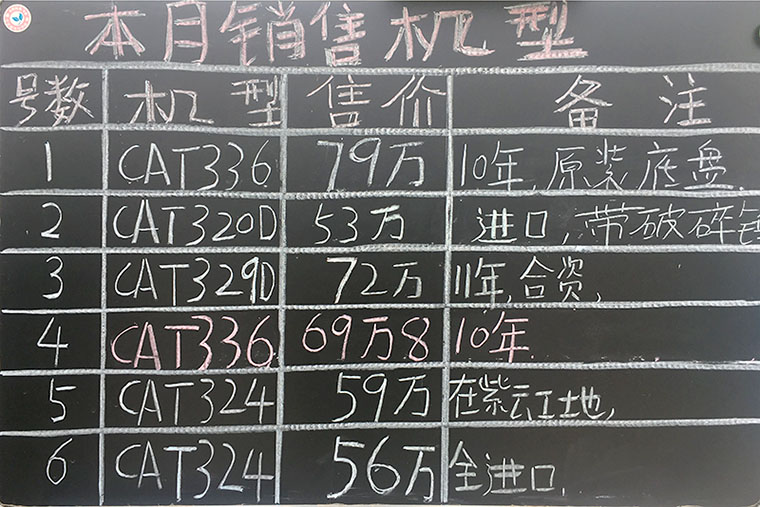 本月销售机型
号数 机型 售价 备注
1 CAT336 79万 10年,原装底盘.
2 CAT320D 53万 进口,带破碎
3 CAT329D 72万 11年,合资,
4 CAT336 69万8 10年
5 CAT324 59万 在紫云工地,
6 CAT324 56万 全进口.